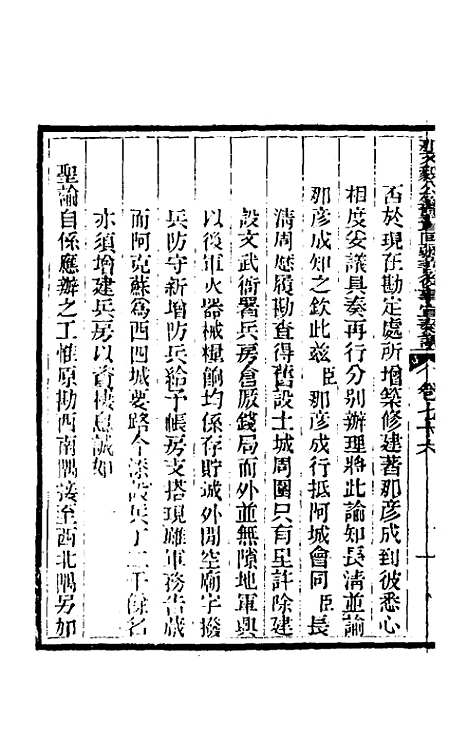 否於現在勘定處所增築修建著那彥成到彼悉心
相度妥議具奏再行分別辦理將此諭知長清並諭
那彥成知之欽此茲臣那彥成行抵阿城會同臣長
清周歷履勘查得舊設土城周圍只有星許除建
設文武衙署兵房倉厫錢局而外並無隙地軍興
以後軍火器械糧餉均係存貯城外閒空廟宇撥
兵防守新增防兵給予帳房支搭現雖軍務告蕆
而阿克蘇爲西四城要路今添設兵丁二千餘名
亦須增建兵房以資棲息誠如
聖諭自係應辦之工惟原勘西南隅接至西北隅另加
卷七十六